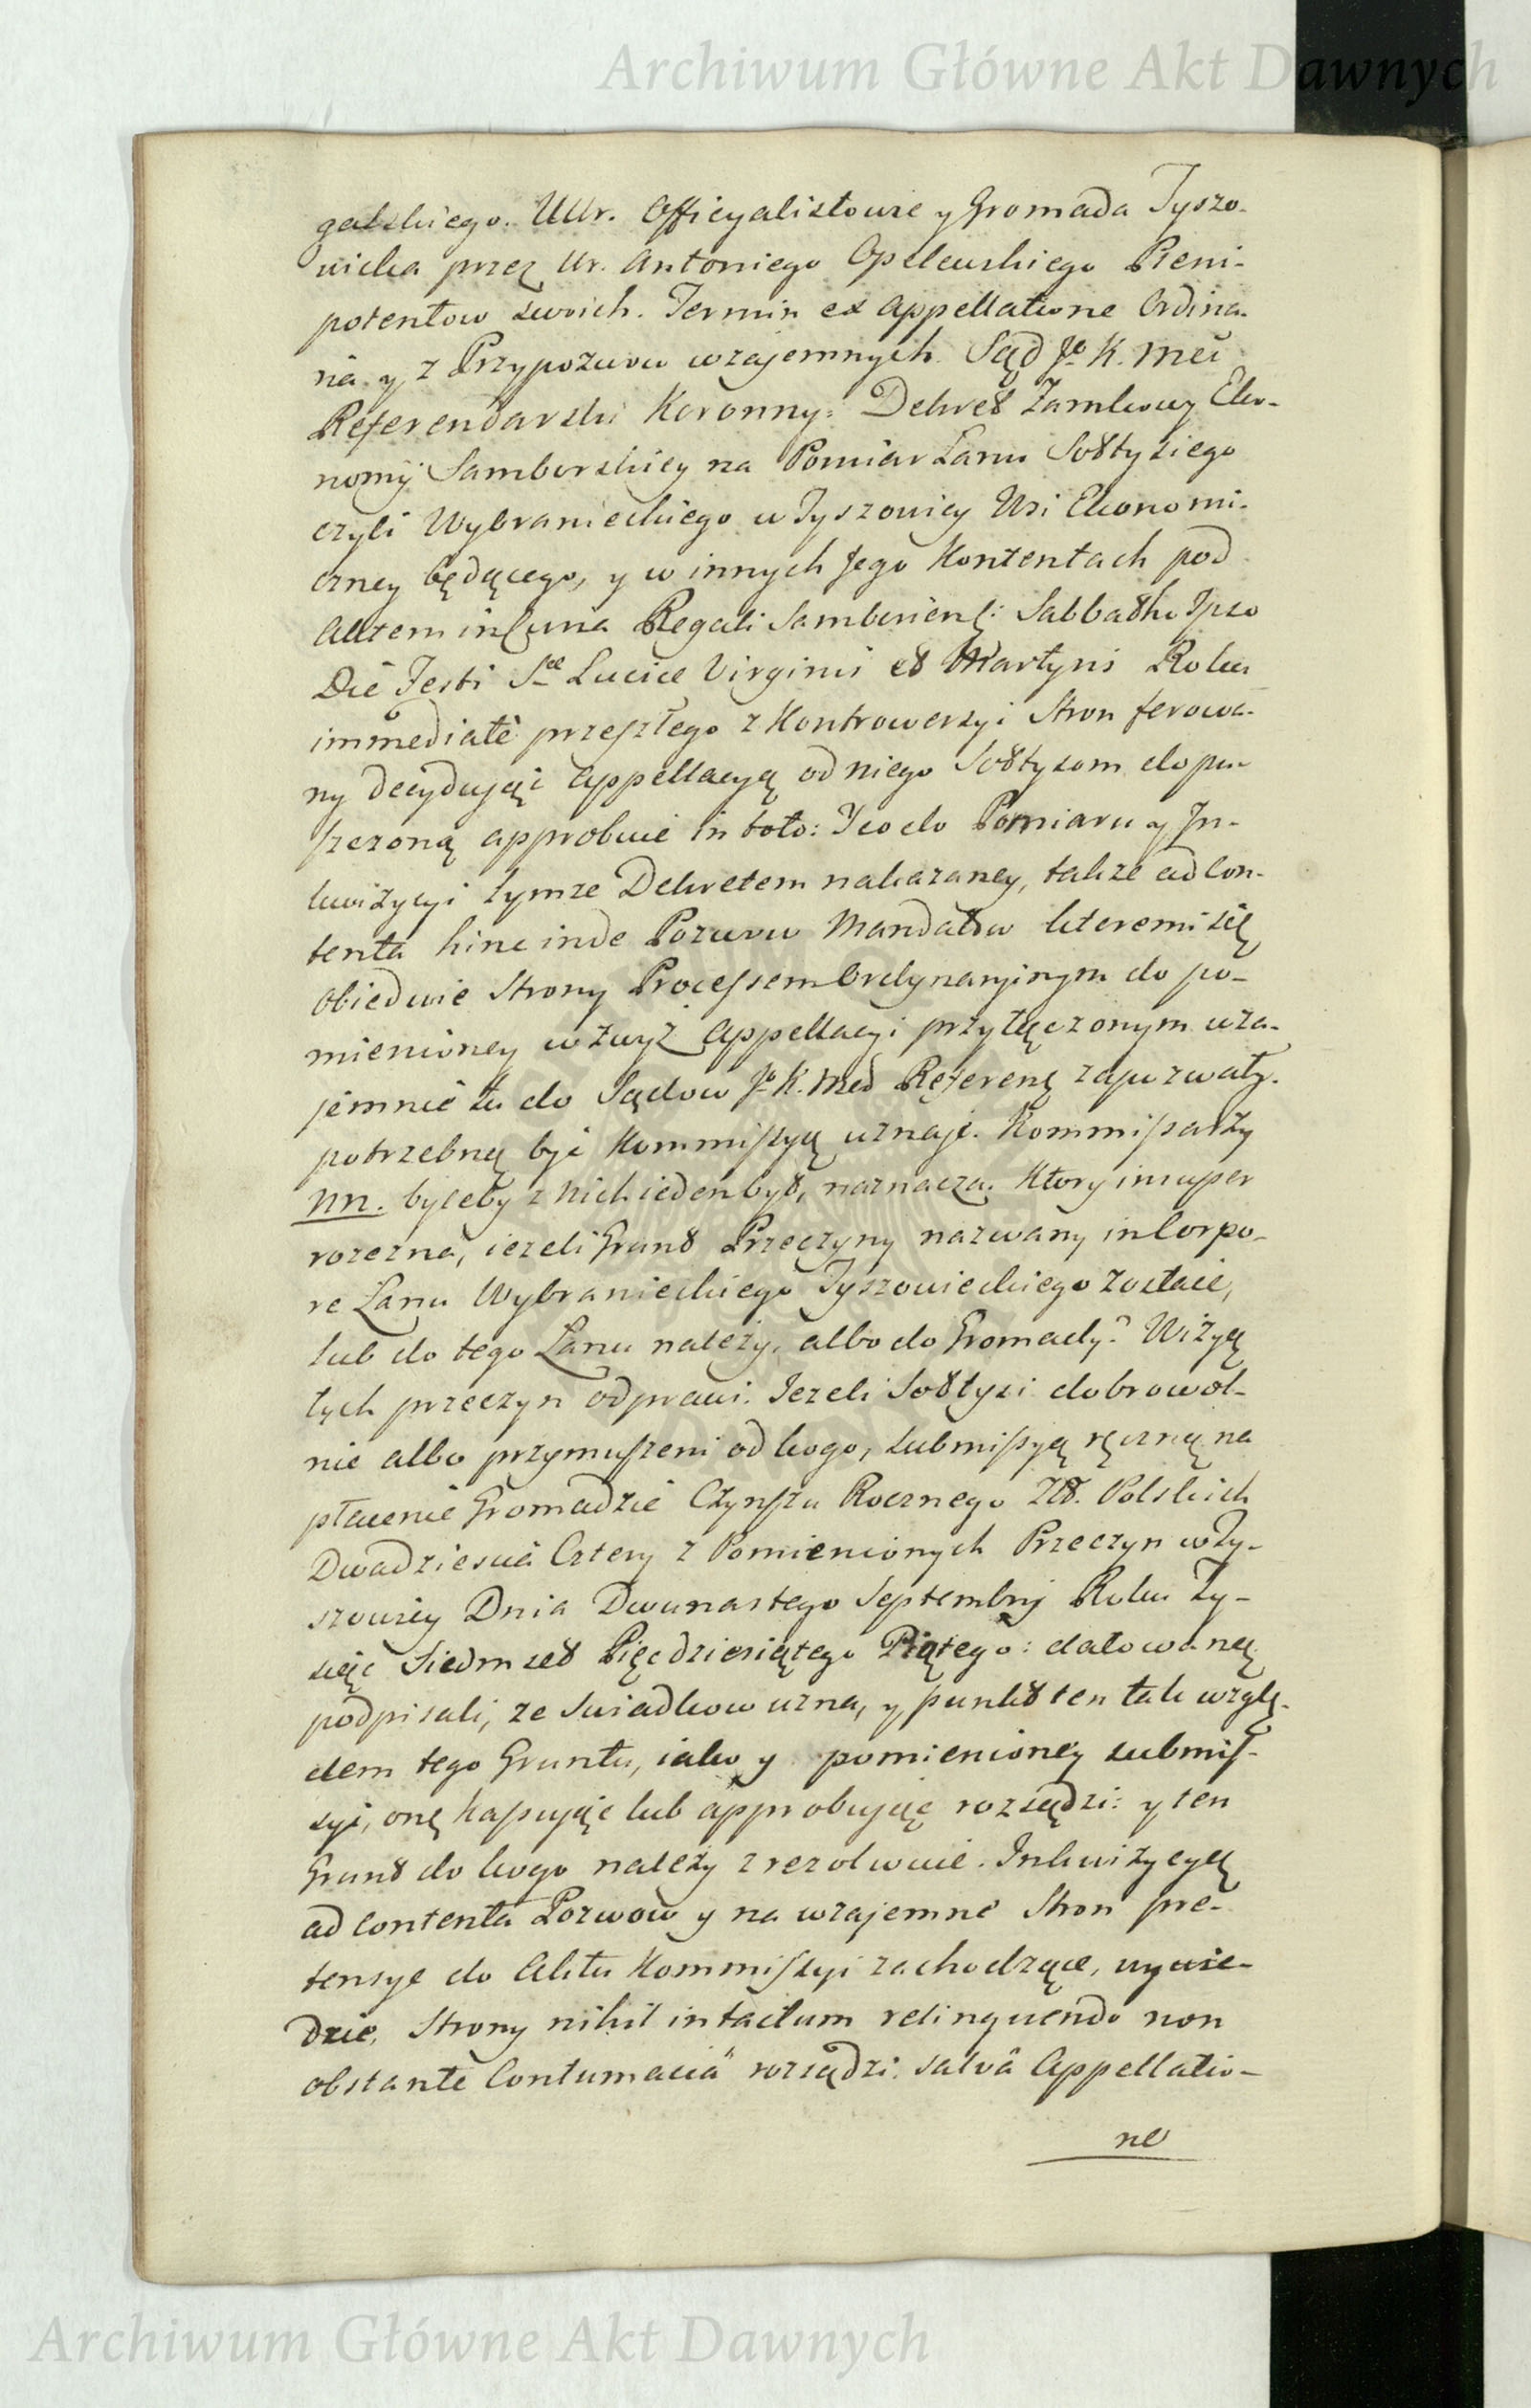 Archiwum Główne Akt Dawnych
galskiego. UUr. Officyalistowie y Gromada Tyszo-
wicka przez Ur. Antoniego Opelewskiego Pleni-
potentow swoich. Termin ex Appellatione Ordina-
ria y z Przypozwow wzajemnych. Sąd Jo K. Mci
Referendarski Koronny: Dekret Zamkowy Eko-
nomij Samborskiey na Pomiar Łanu Sołtysiego
czyli Wybranieckiego w Tyszowicy Wsi Ekonomi-
czney będącego, y w innych Jego Kontentach pod
Actem in Curia Regali Samboriens: Sabbatho Ipso
Die Festi Stae Luciae Virginis et Martyris Roku
immediate przeszłego z Kontrowersyi Stron ferowa-
ny decydując Appellacyą od niego Sołtysom dopu-
szczoną approbuie in toto: Y co do Pomiaru y In-
kwizycyi tymze Dekretem nakazaney, takze ad Con-
tenta hinc inde Pozwow Mandatow ktoremi się
obiedwie Strony Processem Ordynaryinym do po-
mienioney wzwyż Appellacyi przyłączonym wza-
jemnie tu do Sądow Jo K. Mci Referen: zapozwały.
potrzebną być Kommissyą uznaje. Kommissarzy
NN. byleby z nich ieden był, naznacza. Ktory insuper
rozezna, iezeli Grunt Przeczyny nazwany in Corpo-
re Łanu Wybranieckiego Tyszowieckiego zostaie,
lub do tego Łanu należy, albo do Gromady? Wizyą
tych przeczyn odprawi. Jezeli Sołtysi dobrowol-
nie albo przymuszeni od kogo, submissyą ręczną na
płacenie Gromadzie Czynszu Rocznego Złt. Polskich
Dwadziescia Cztery z Pomienionych Przeczyn w Ty-
szowicy Dnia Dwunastego Septembrij Roku Ty-
siąc Siedmset Pięcdziesiątego Piątego: datowaną
podpisali, ze Swiadkow uzna, y punkt ten tak wzglę-
dem tego Gruntu, iako y pomienioney submis-
syi, onę kassując lub approbując rozsądzi: y ten
Grunt do kogo należy zrezolwuie. Inkwizycyą
ad Contenta Pozwow y na wzajemne Stron pre-
tensye do Aktu Kommissyi zachodzące, wywie-
dzie, Strony nihil intactum relinquendo non
obstante Contumacia rozsądzi. salvâ Appellatio-
ne
Archiwum Główne Akt Dawnych